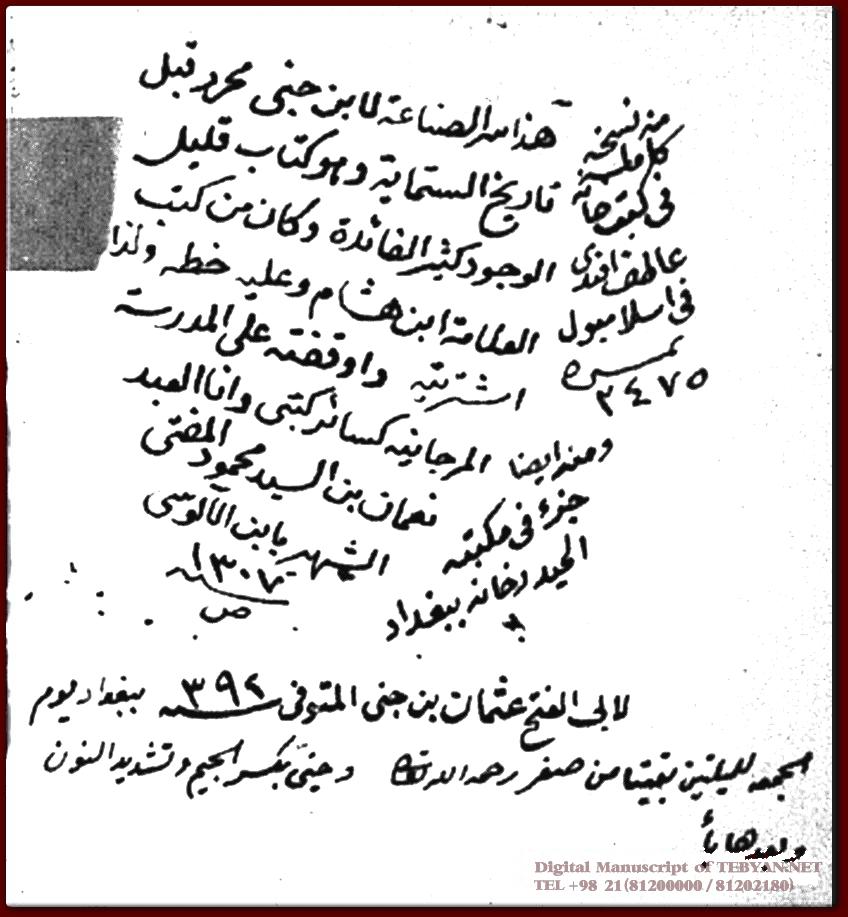 هذا سر الصناعة لابن جني محرر قبل
تاريخ الستماية وهو كتاب قليل
الوجود كثير الفائدة وكان من كتب
العلامة ابن هشام وعليه خطه ولذا
اشتريته واوقفته على المدرسة
المرجانية كسائر كتبي وانا العبد
نعمان بن السيد محمود المفتي
الشهير بابن الآلوسي
سنة ١٣٠٧
ص
منه نسخة
كاملة
في كتبخانة
عاطف افندي
في اسلامبول
نمره
٢٤٧٥
ومنه ايضا
جزء في مكتبة
الحيدرخانه ببغداد
لابي الفتح عثمان بن جني المتوفى سنة ٣٩٢ ببغداد يوم
الجمعة لليلتين بقيتا من صفر رحمه الله تعالى وجني بكسر الجيم وتشديد النون
وبعدها ياء
Digital Manuscript of TEBYAN.NET
TEL +98 21(81200000 / 81202180)